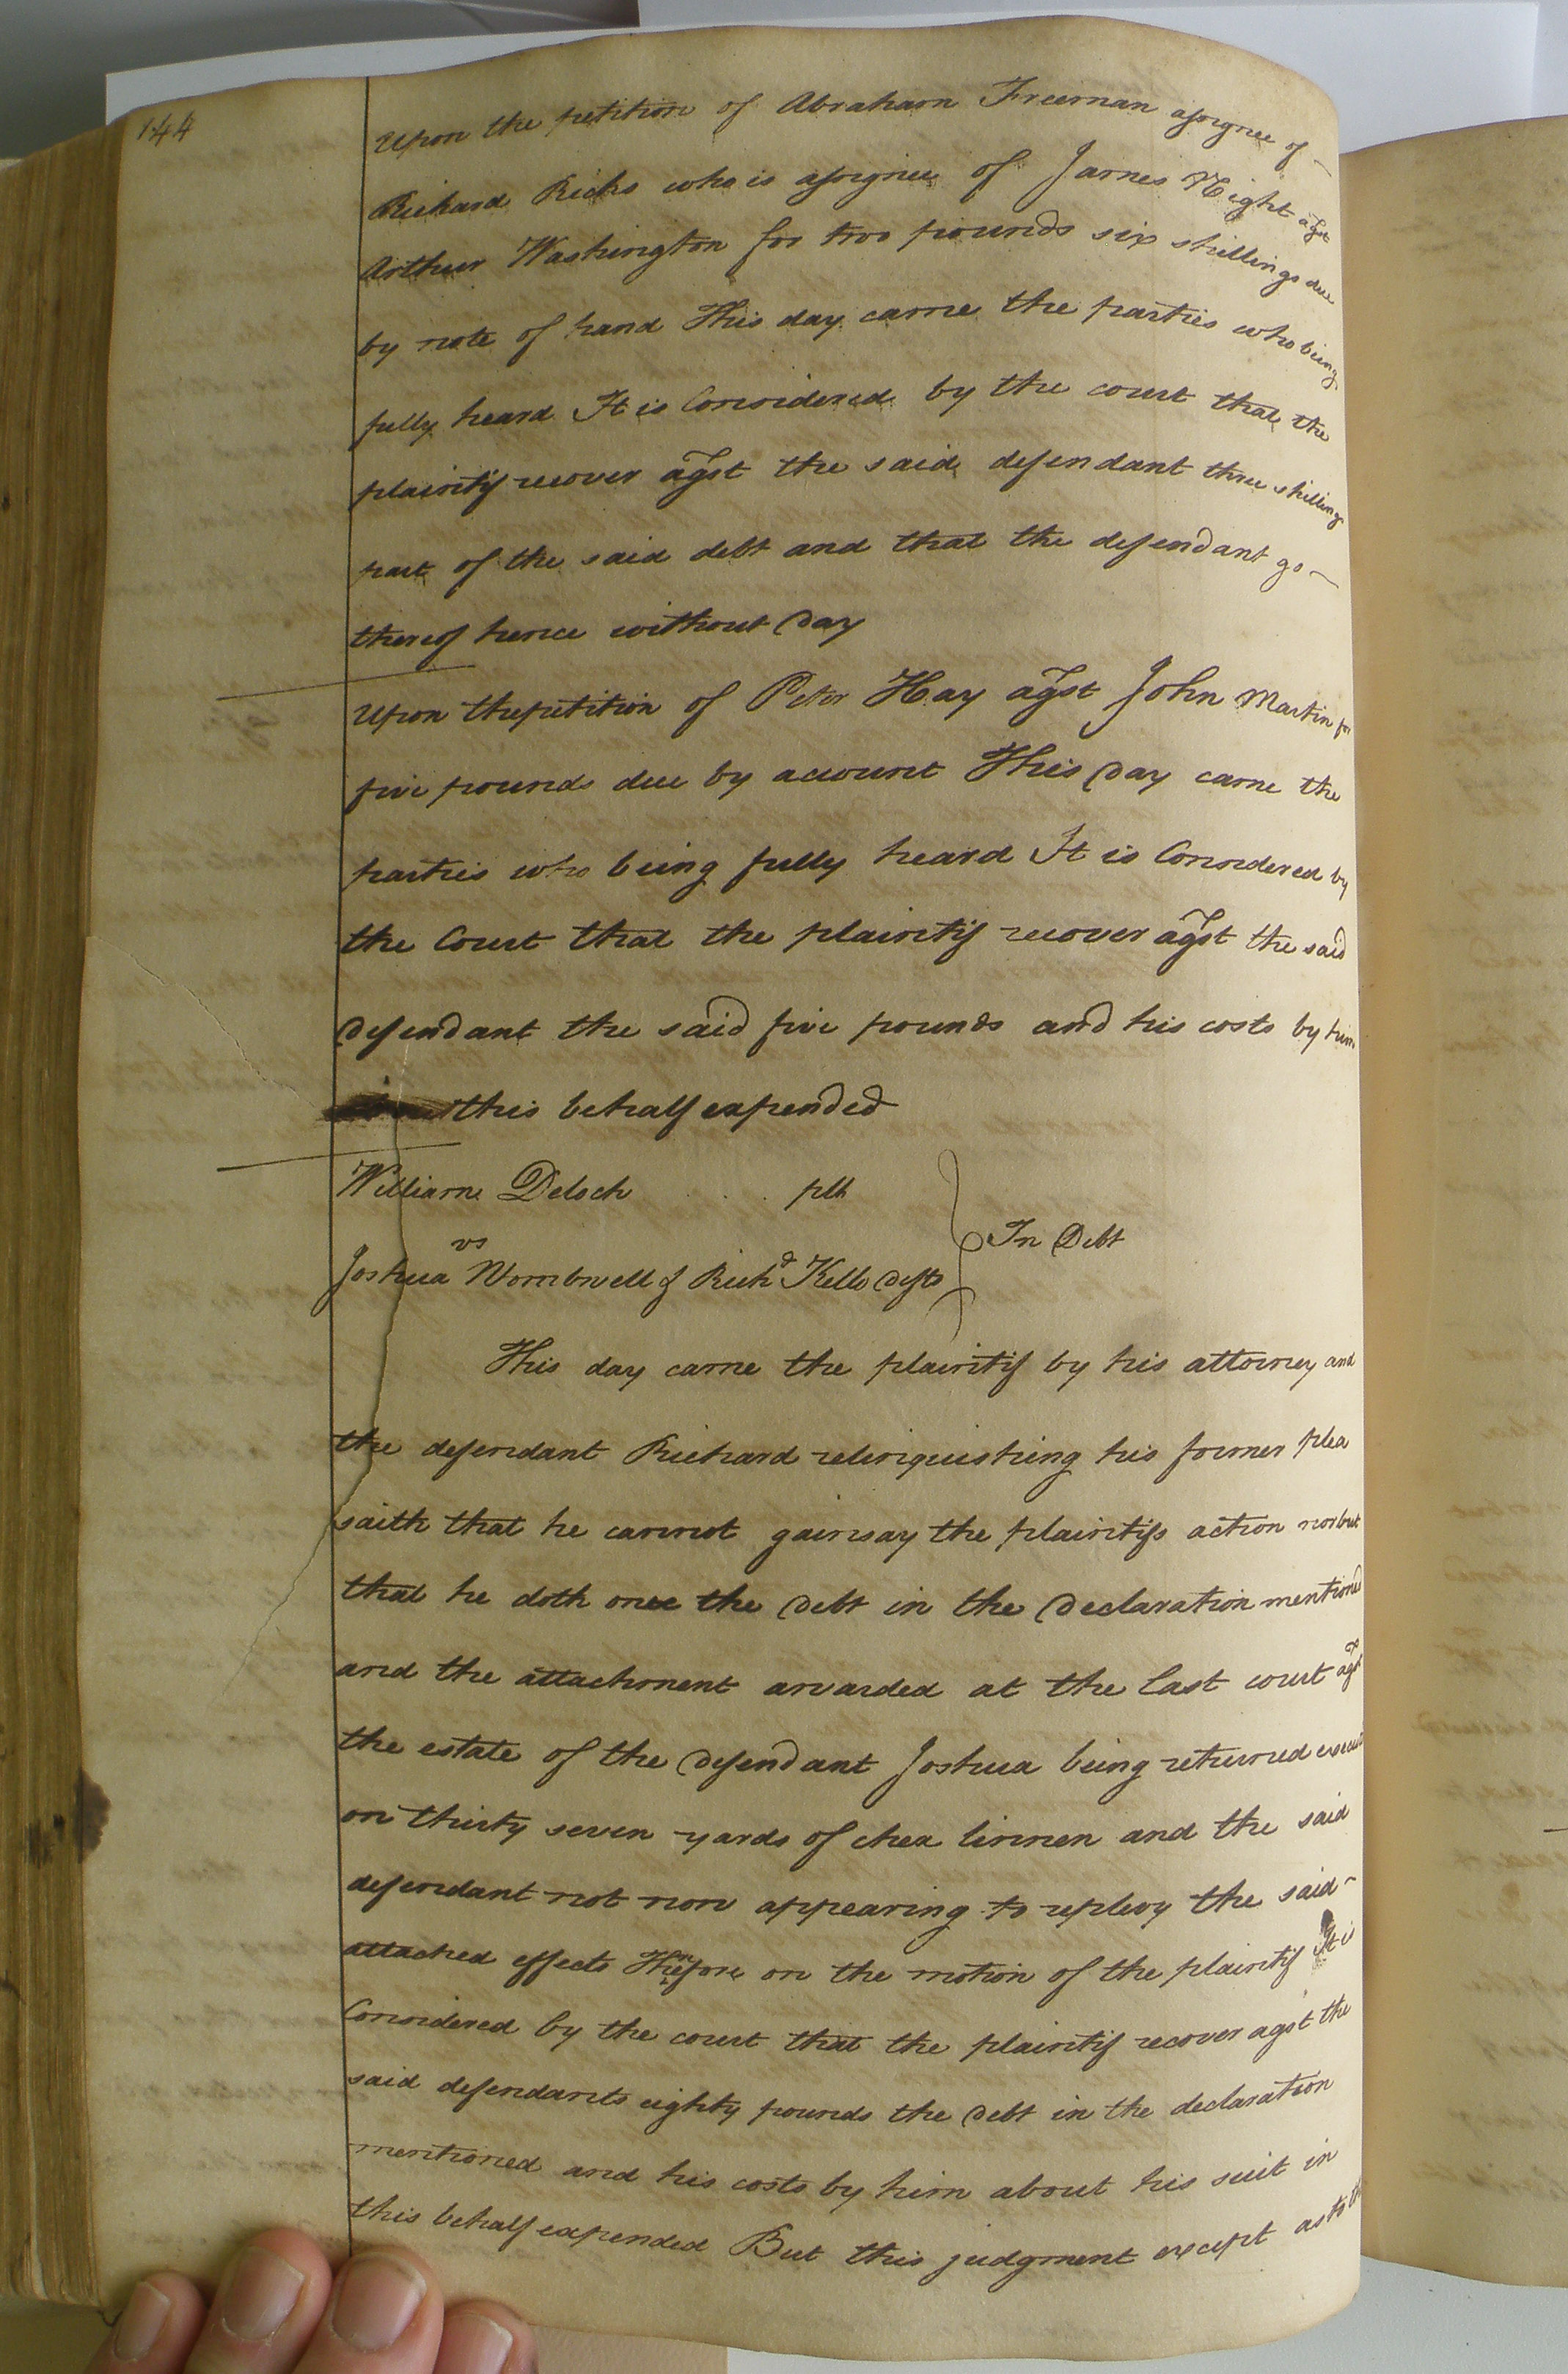 144
Upon the petition of Abraham Freeman assignee of
Richard Ricks who is assignee of James Wight agst
Arthur Washington for two pounds six shillings due
by note of hand This day came the parties who being
fully heard It is Considered by the court that the
plaintif recover agst the said defendant three shillings
part of the said debt and that the defendant go
thereof hence without Day
Upon the petition of Peter Hay agst John Martin for
five pounds due by account This Day came the
parties who being fully heard It is Considered by
the Court that the plaintif recover agst the said
defendant the said five pounds and his costs by him
this behalf expended
William Deloch plt
vs In Debt
Joshua Wombwell & Richd Kello defts
This day came the plaintif by his attorney and
the defendant Richard relinquishing his former plea
saith that he cannot gainsay the plaintifs action nor but
that he doth owe the Debt in the Declaration mentioned
and the attachment awarded at the last court agst
the estate of the Defendant Joshua being returned
on thirty seven yards of chex linnen and the said
defendant not now appearing to replevy the said
attached effects Therefore on the motion of the plaintif It is
Considered by the court that the plaintif recover agst the
said defendants eighty pounds the Debt in the declaration
mentioned and his costs by him about his suit in
this behalf expended But this judgment except as to the